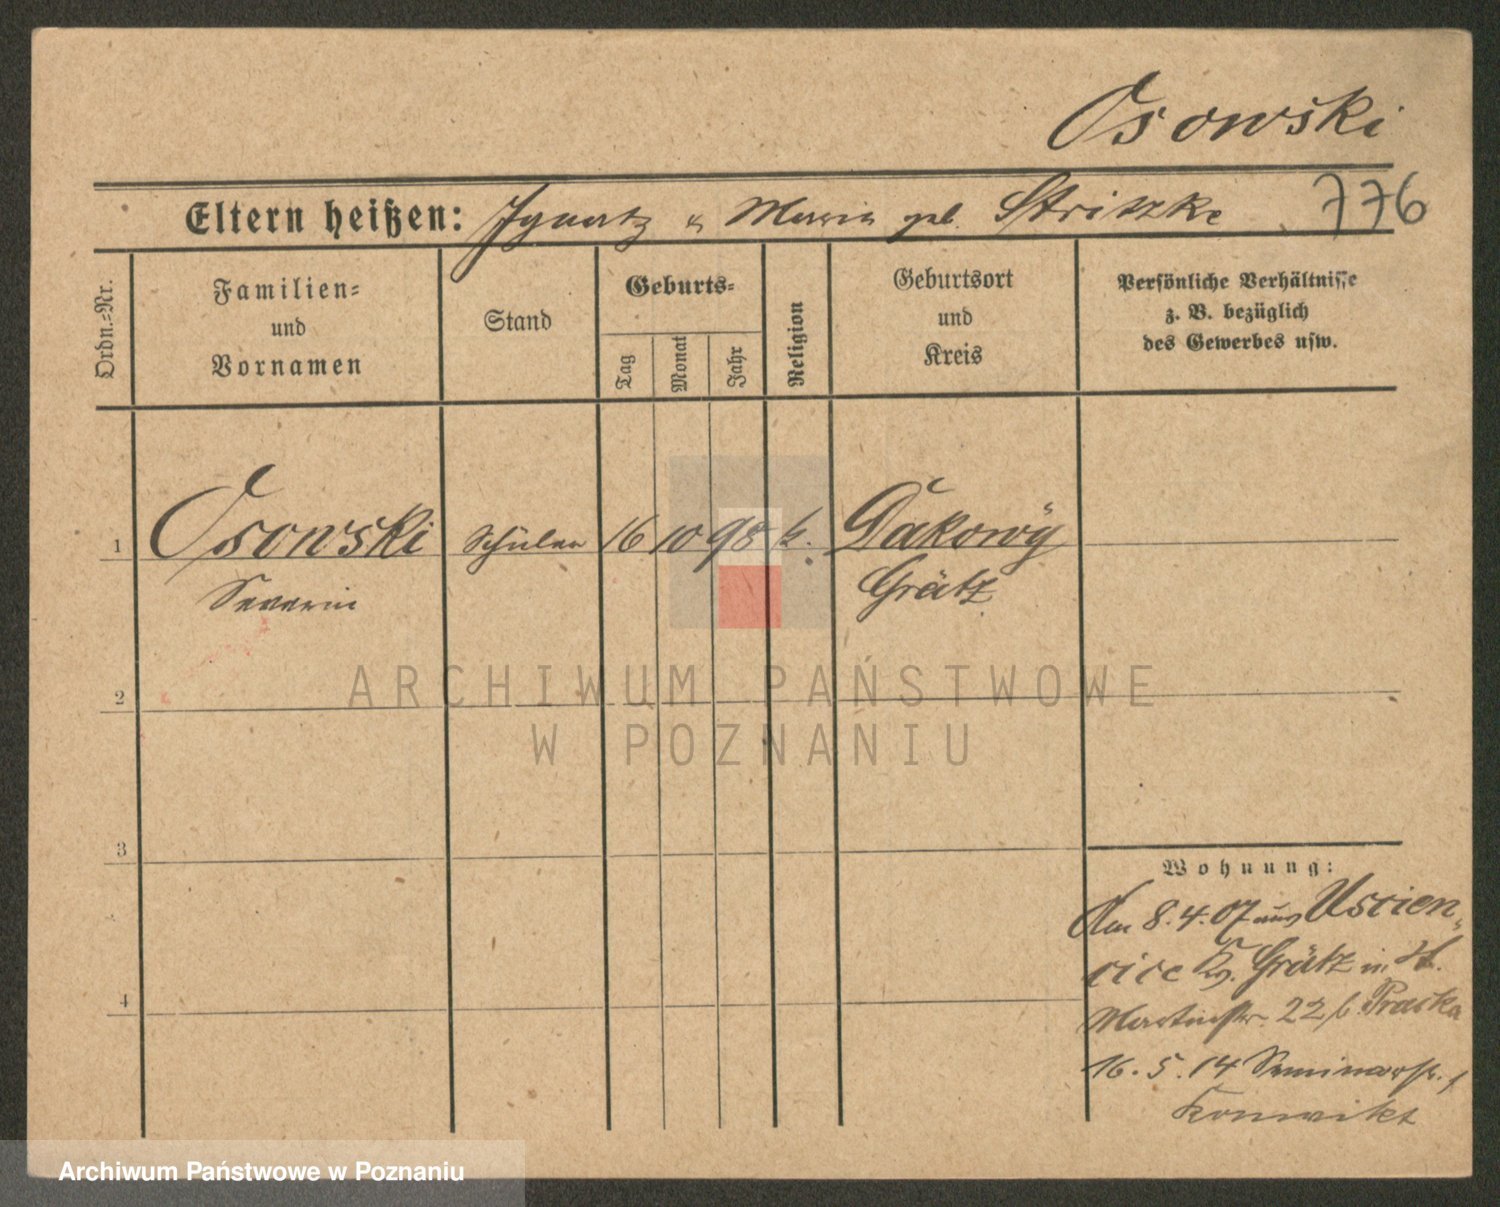 Osowski
Eltern heißen: Ignatz u Maria geb. Stritzke 776
Ordn.=Nr.
Familien=
und
Vornamen
Stand
Geburts=
Tag
Monat
Jahr
Religion
Geburtsort
und
Kreis
Persönliche Verhältnisse
z. B. bezüglich
des Gewerbes usw.
1 Osowski Schüler 16 10 98 k. Dakowÿ
Severin Grätz
2
3
4
Wohnung:
Am 8.4.07 aus Uscien,,
cice Kr. Grätz in
Martinstr. 22 b. Praska
16.5.14 Seminarstr. 1
Konvikt
ARCHIWUM PAŃSTWOWE
W POZNANIU
Archiwum Państwowe w Poznaniu